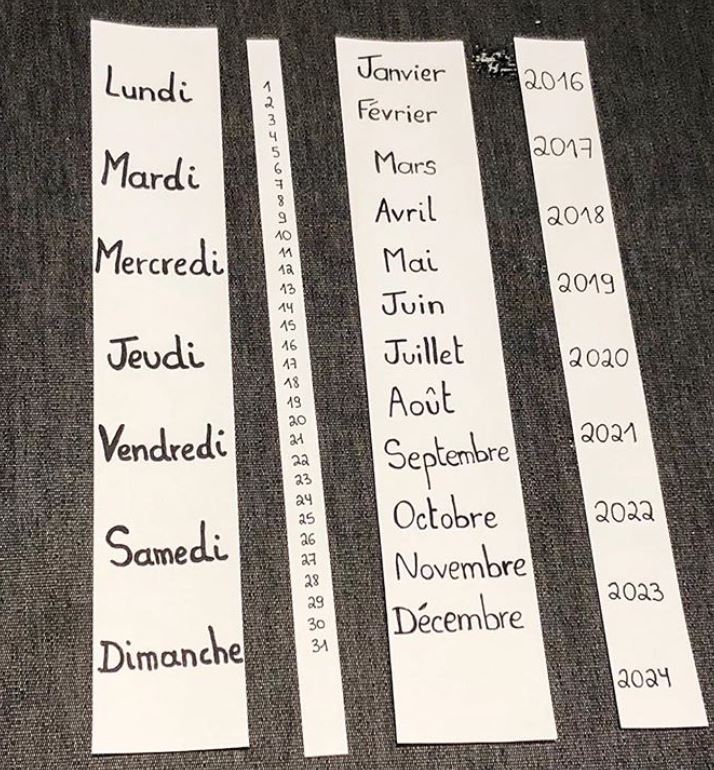 Lundi
Mardi
Mercredi
Jeudi
Vendredi
Samedi
Dimanche
1
2
3
4
5
6
7
8
9
10
11
12
13
14
15
16
17
18
19
20
21
22
23
24
25
26
27
28
29
30
31
Janvier
Février
Mars
Avril
Mai
Juin
Juillet
Août
Septembre
Octobre
Novembre
Décembre
2016
2017
2018
2019
2020
2021
2022
2023
2024